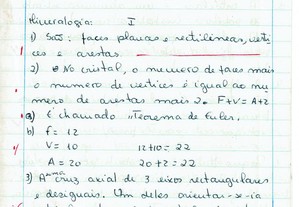 Mineralogia: I
1) São: faces planas e retilíneas, vérti
ces e arestas.
2) No cristal, o numero de faces mais
o numero de vertices é igual ao nu
mero de arestas mais 2. F+V=A+2
a) É chamado "Teorema de Euler.
b) f = 12
V = 10 12+10=22
A = 20 20+2=22
3) A cruz axial de 3 eixos rectangulares
e desiguais. Um deles orientar-se-ia